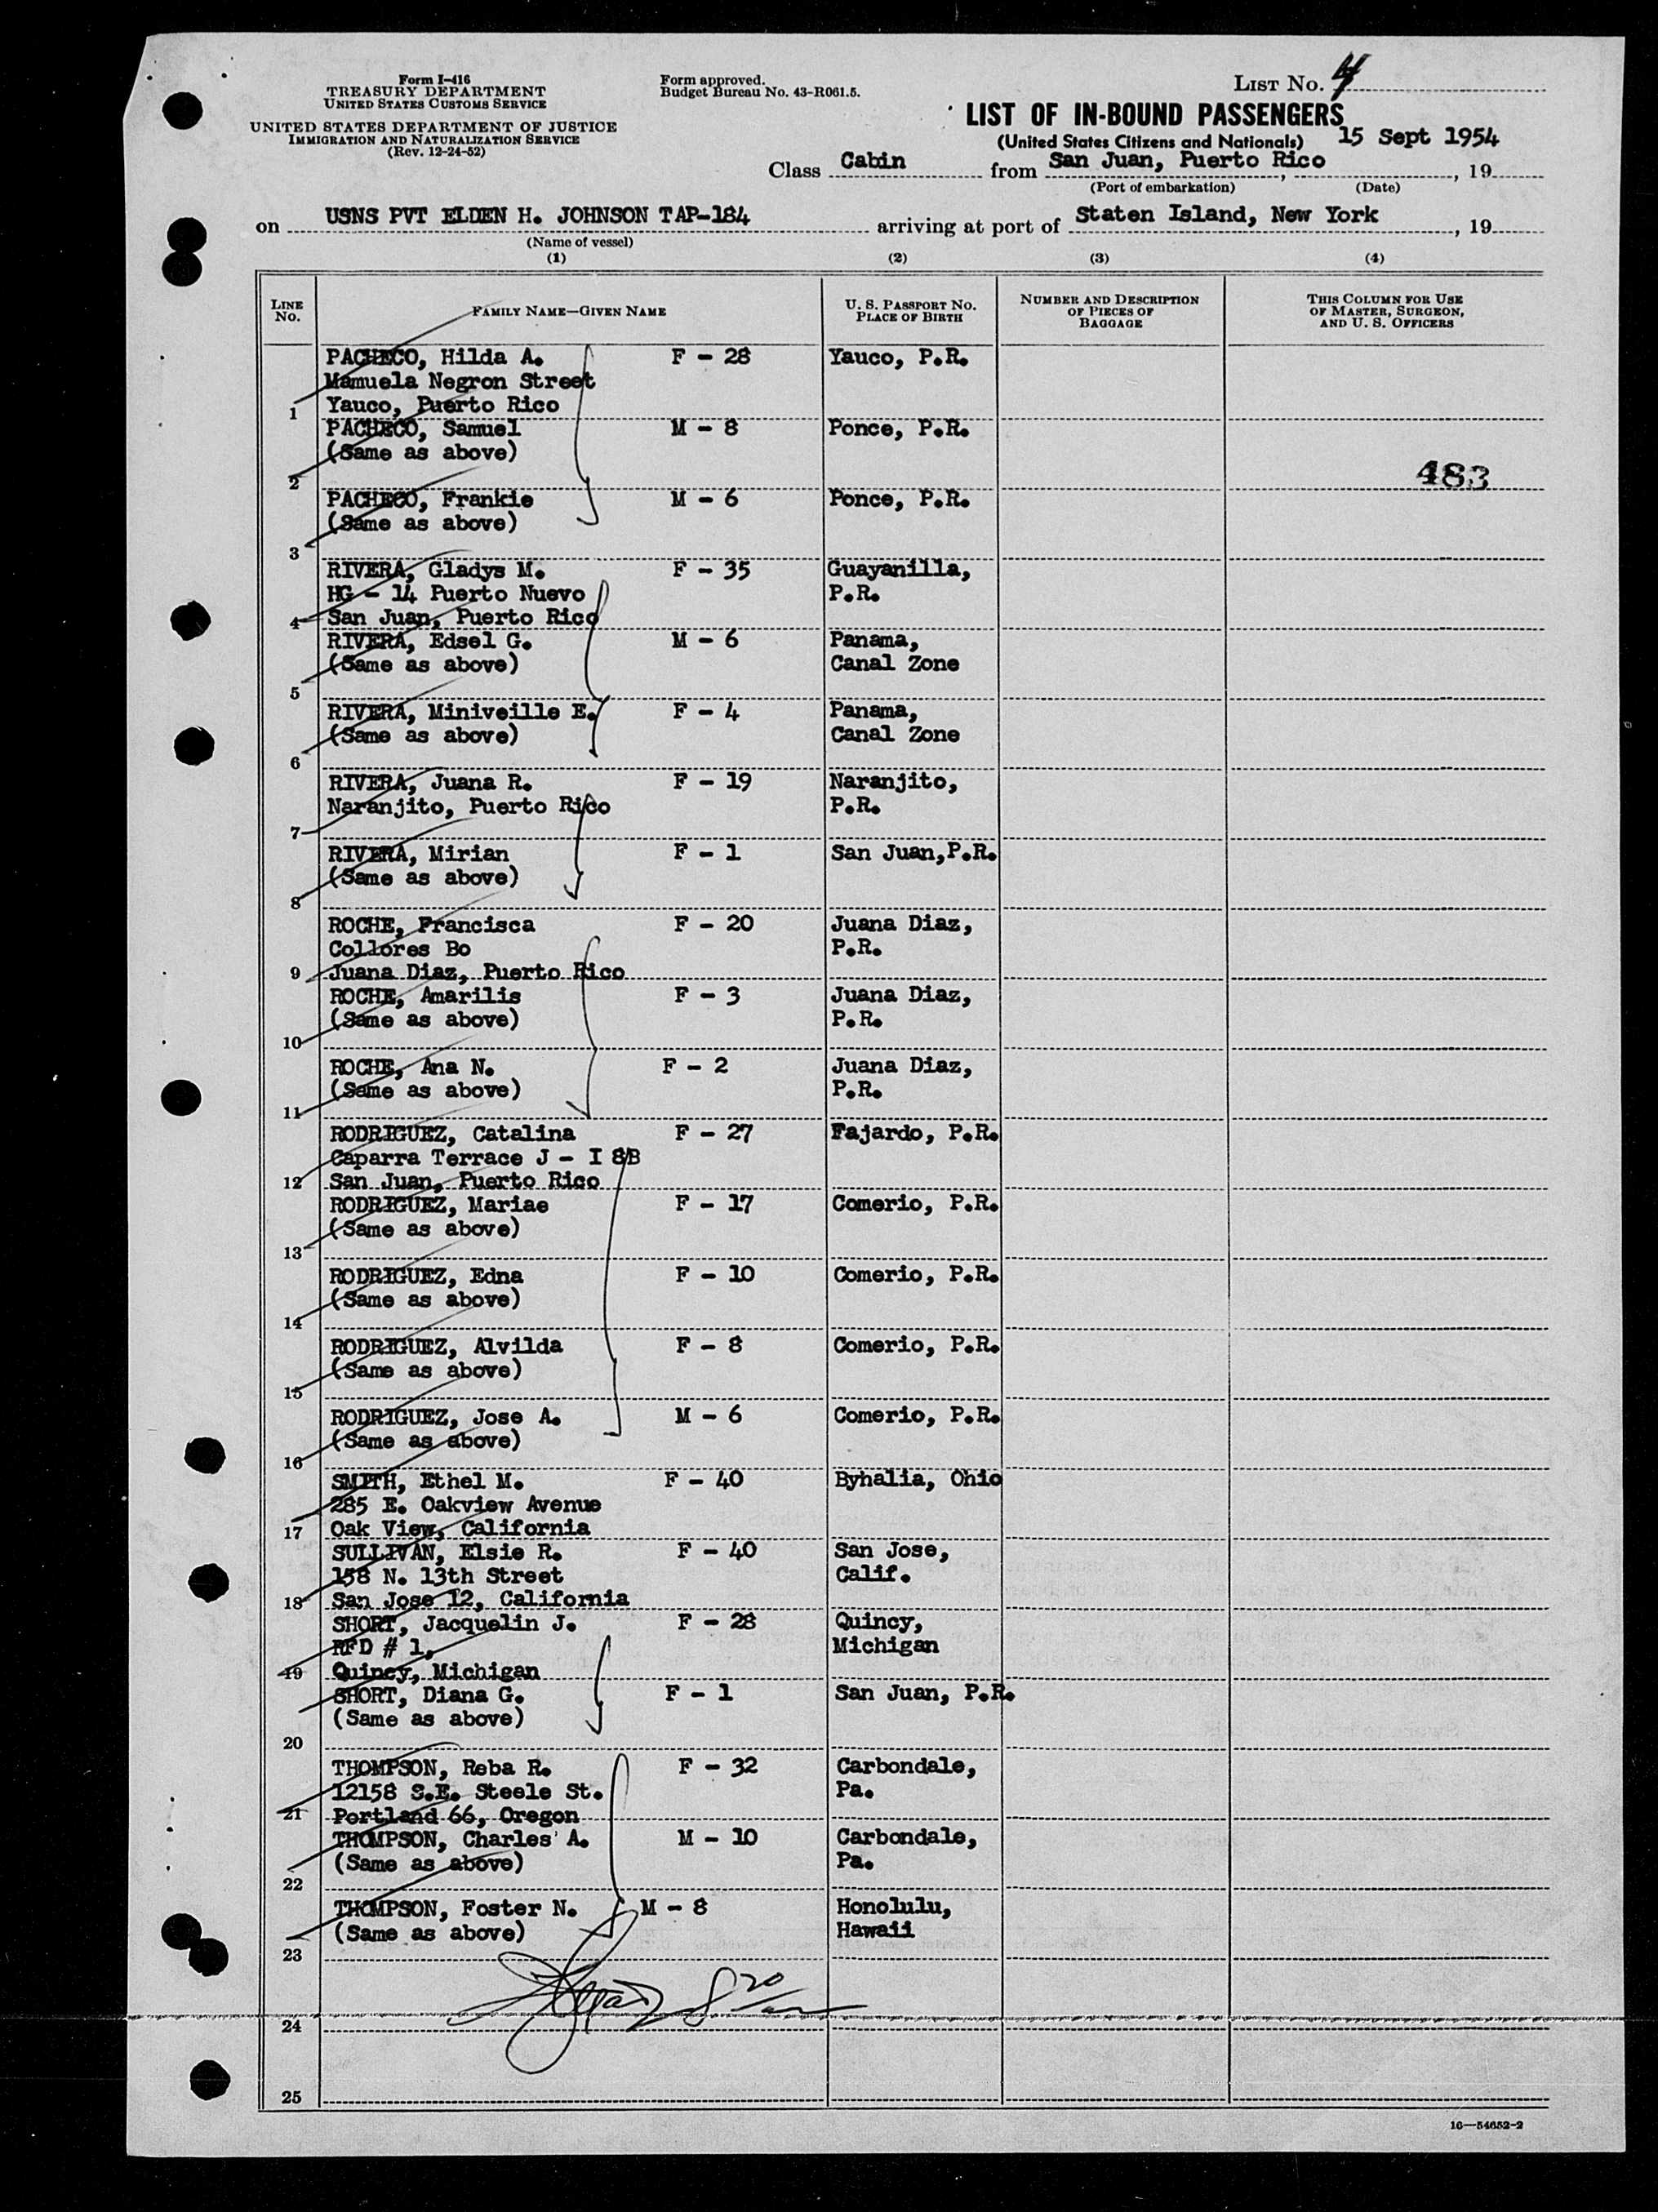 Form I-416
TREASURY DEPARTMENT
UNITED STATES CUSTOMS SERVICE
UNITED STATES DEPARTMENT OF JUSTICE
IMMIGRATION AND NATURALIZATION SERVICE
(Rev. 12-24-52)
Form approved.
Budget Bureau No. 43-R061.5.
LIST No. 4
LIST OF IN-BOUND PASSENGERS
(United States Citizens and Nationals) 15 Sept 1954
Class Cabin from San Juan, Puerto Rico, 19
(Port of embarkation) (Date)
on USNS PVT ELDEN H. JOHNSON TAP-184 arriving at port of Staten Island, New York, 19
(Name of vessel)
(1) (2) (3) (4)
LINE No. FAMILY NAME—GIVEN NAME U. S. PASSPORT No. PLACE OF BIRTH NUMBER AND DESCRIPTION OF PIECES OF BAGGAGE THIS COLUMN FOR USE OF MASTER, SURGEON, AND U. S. OFFICERS
PACHECO, Hilda A. F - 28 Yauco, P.R.
Mamuela Negron Street
1 Yauco, Puerto Rico
PACHECO, Samuel M - 8 Ponce, P.R.
(Same as above)
483
2
PACHECO, Frankie M - 6 Ponce, P.R.
(Same as above)
3
RIVERA, Gladys M. F - 35 Guayanilla,
HG - 14 Puerto Nuevo P.R.
4 San Juan, Puerto Rico
RIVERA, Edsel G. M - 6 Panama,
(Same as above) Canal Zone
5
RIVERA, Miniveille E. F - 4 Panama,
(Same as above) Canal Zone
6
RIVERA, Juana R. F - 19 Naranjito,
Naranjito, Puerto Rico P.R.
7
RIVERA, Mirian F - 1 San Juan,P.R.
(Same as above)
8
ROCHE, Francisca F - 20 Juana Diaz,
Collores Bo P.R.
9 Juana Diaz, Puerto Rico
ROCHE, Amarilis F - 3 Juana Diaz,
(Same as above) P.R.
10
ROCHE, Ana N. F - 2 Juana Diaz,
(Same as above) P.R.
11
RODRIGUEZ, Catalina F - 27 Fajardo, P.R.
Caparra Terrace J - I 8B
12 San Juan, Puerto Rico
RODRIGUEZ, Mariae F - 17 Comerio, P.R.
(Same as above)
13
RODRIGUEZ, Edna F - 10 Comerio, P.R.
(Same as above)
14
RODRIGUEZ, Alvilda F - 8 Comerio, P.R.
(Same as above)
15
RODRIGUEZ, Jose A. M - 6 Comerio, P.R.
(Same as above)
16
SMITH, Ethel M. F - 40 Byhalia, Ohio
285 E. Oakview Avenue
17 Oak View, California
SULLIVAN, Elsie R. F - 40 San Jose,
158 N. 13th Street Calif.
18 San Jose 12, California
SHORT, Jacquelin J. F - 28 Quincy,
RFD # 1, Michigan
19 Quincy, Michigan
SHORT, Diana G. F - 1 San Juan, P.R.
(Same as above)
20
THOMPSON, Reba R. F - 32 Carbondale,
12158 S.E. Steele St. Pa.
21 Portland 66, Oregon
THOMPSON, Charles A. M - 10 Carbondale,
(Same as above) Pa.
22
THOMPSON, Foster N. M - 8 Honolulu,
(Same as above) Hawaii
23
24
25
16—54652-2